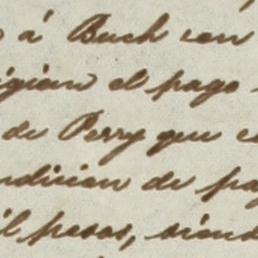 á Buch con
igian el pago
de Perry que
ndicion de pa
il pesos, siend